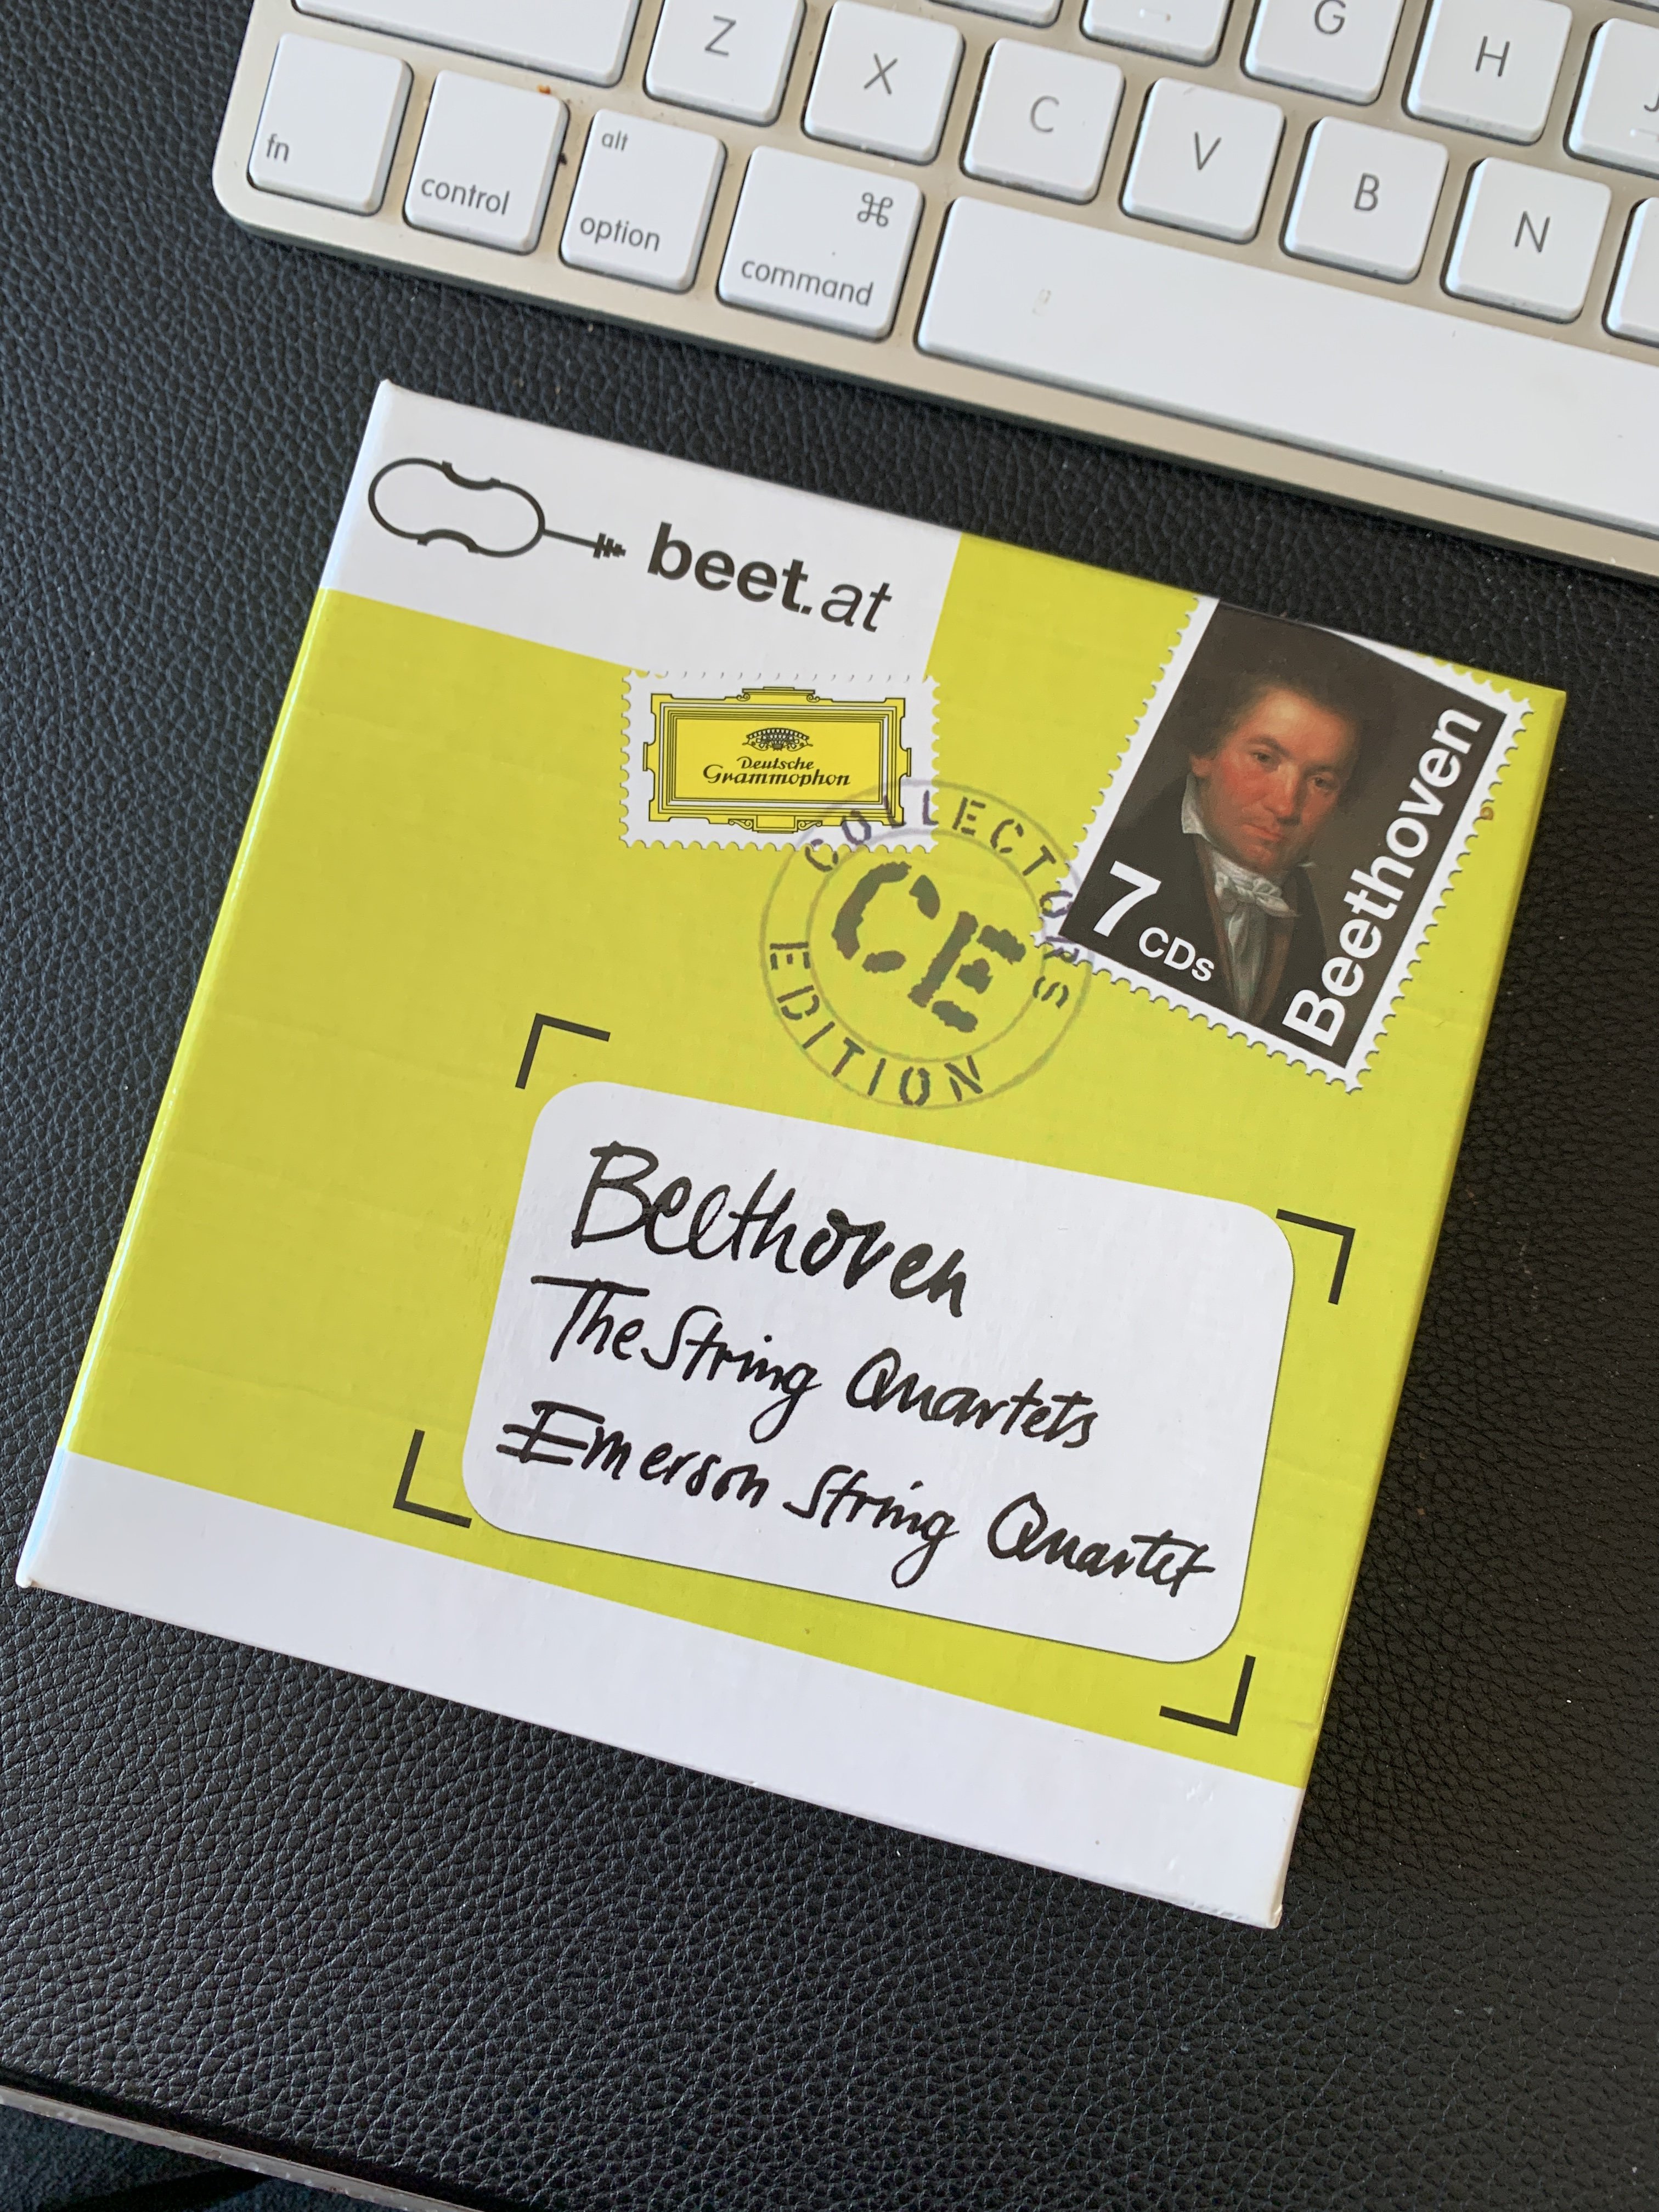 G
Z
X
H
fn
C
alt
V
control
⌘
B
option
N
command
beet.at
Deutsche
Grammophon
COLLECTORS
CE
EDITION
7 CDs
Beethoven
Beethoven
The String Quartets
Emerson String Quartet